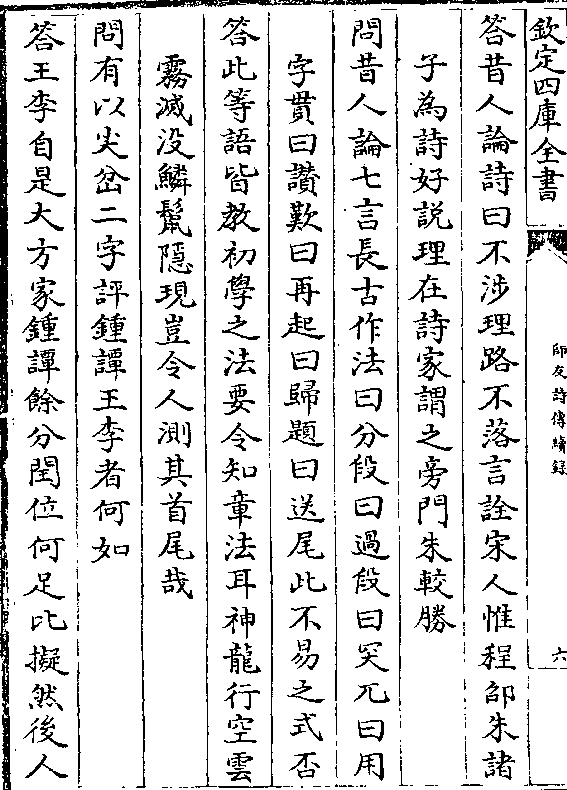 欽定四庫全書
師友詩傳續錄
六
答昔人論詩曰不涉理路不落言詮宋人惟程邵朱諸
子為詩好說理在詩家謂之旁門朱較勝
問昔人論七言長古作法曰分段曰過段曰突兀曰用
字貫曰讚歎曰再起曰歸題曰送尾此不易之式否
答此等語皆教初學之法要令知章法耳神龍行空雲
霧滅没鱗鬣隱現豈令人測其首尾哉
問有以尖岔二字評鍾譚王李者何如
答王李自是大方家鍾譚餘分閏位何足比擬然後人